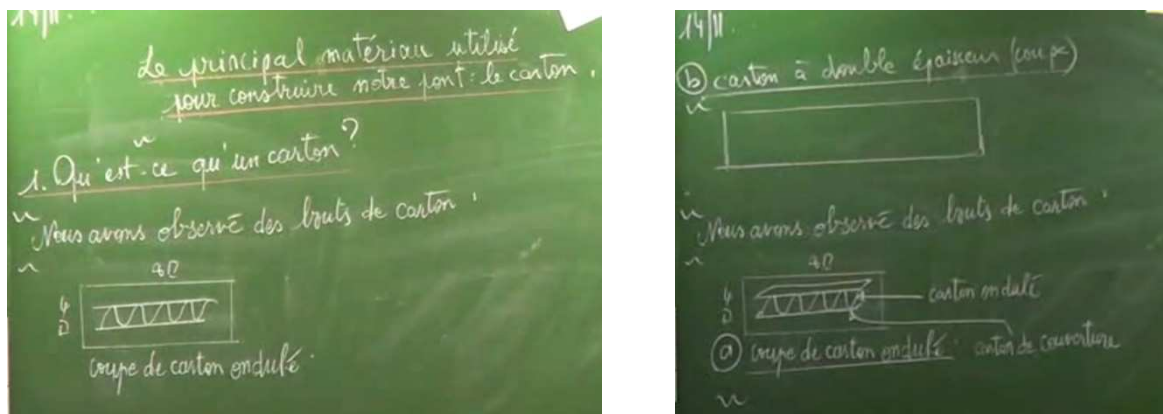 14/11.
Le principal matériau utilisé
pour construire notre pont : le carton.
1. Qu'est-ce qu'un carton ?
Nous avons observé des bouts de carton.
coupe de carton ondulé.
14/11.
b carton à double épaisseur (coupe)
Nous avons observé des bouts de carton.
carton ondulé
a coupe de carton ondulé. carton de couverture